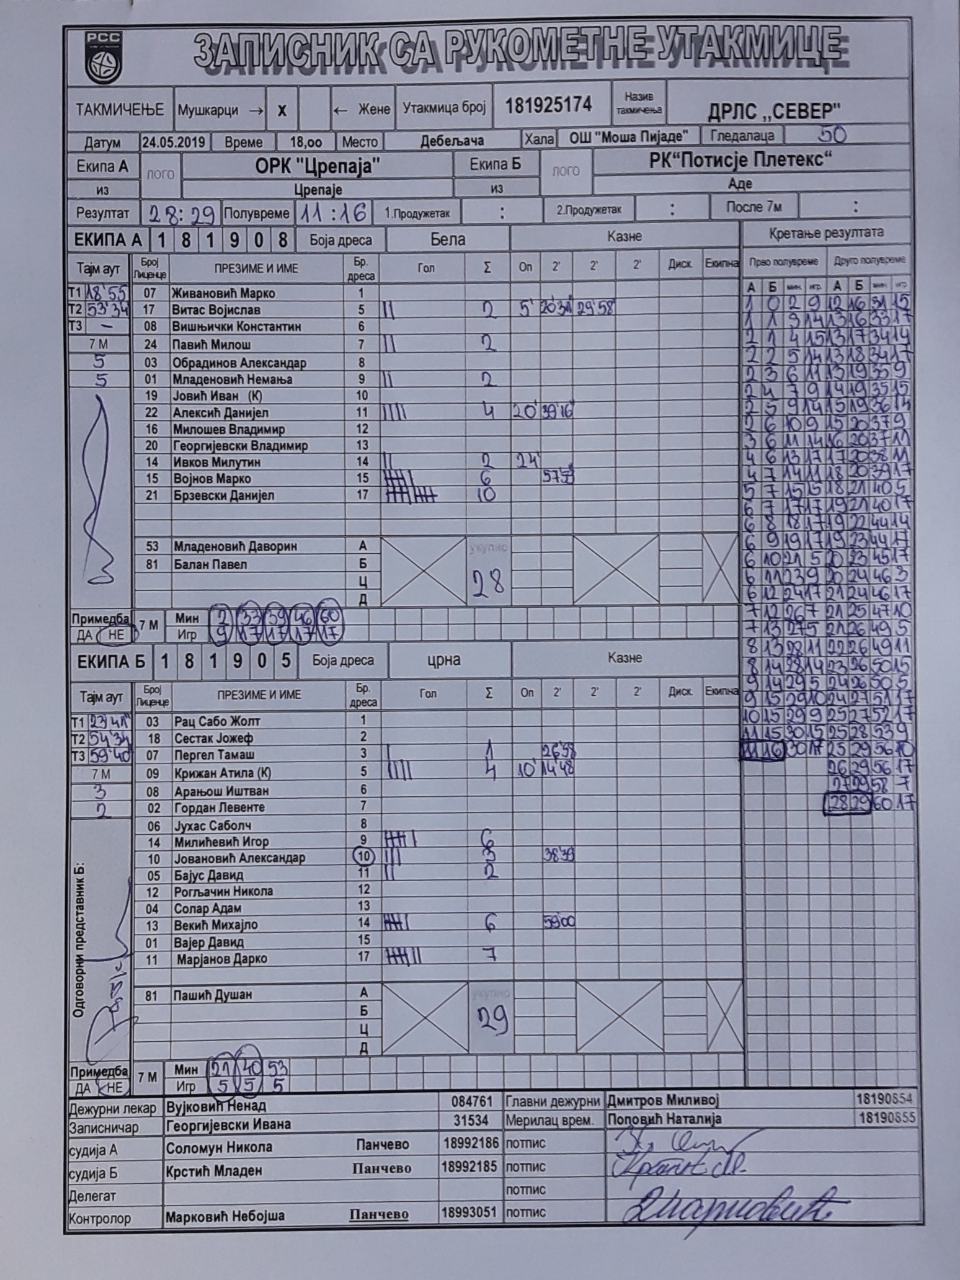 РСС
ЗАПИСНИК СА РУКОМЕТНЕ УТАКМИЦЕ
ТАКМИЧЕЊЕ Мушкарци → X ← Жене Утакмица број 181925174 Назив такмичења ДРЛС ,,СЕВЕР"
Датум 24.05.2019 Време 18,оо Место Дебељача Хала ОШ "Моша Пијаде" Гледалаца 50
Екипа А ЛОГО ОРК "Црепаја" Екипа Б ЛОГО РК“Потисје Плетекс“
из Црепаје из Аде
Резултат 28:29 Полувреме 11:16 1.Продужетак : 2.Продужетак : После 7м :
ЕКИПА А 1 8 1 9 0 8 Боја дреса Бела Казне Кретање резултата
Тајм аут Број Лиценце ПРЕЗИМЕ И ИМЕ Бр. дреса Гол Σ Оп 2' 2' 2' Диск. Екипна Прво полувреме Друго полувреме
А Б мин. игр. А Б мин. игр.
Т1 18'55 07 Живановић Марко 1
Т2 53'34 17 Витас Војислав 5 || 2 5' 20'31 29'58
Т3 – 08 Вишњички Константин 6
7 М 24 Павић Милош 7 || 2
5 03 Обрадинов Александар 8
5 01 Младеновић Немања 9 || 2
19 Јовић Иван (К) 10
22 Алексић Данијел 11 |||| 4 20' 39'16
16 Милошев Владимир 12
20 Георгијевски Владимир 13
14 Ивков Милутин 14 || 2 24'
15 Војнов Марко 15 6
21 Брзевски Данијел 17 10
53 Младеновић Даворин А укупно
81 Балан Павел Б 28
Ц
Д
Примедба 7 М Мин 2 33 39 46 60
ДА НЕ Игр 9 17 17 17 17
1 0 2 9 12 16 31 15
1 1 3 14 13 16 33 17
2 1 4 15 13 17 34 14
2 2 5 14 13 18 34 17
2 3 6 11 13 19 35 9
2 4 7 9 14 19 35 15
2 5 9 14 15 19 36 14
2 6 10 9 15 20 37 9
3 6 11 14 16 20 37 11
4 6 13 17 17 20 38 11
4 7 14 11 18 20 39 17
5 7 15 15 18 21 40 5
6 7 17 17 19 21 40 17
6 8 18 17 19 22 44 14
6 9 19 17 19 23 44 17
6 10 21 5 20 23 45 17
6 11 23 9 20 24 46 3
6 12 24 17 21 24 46 17
7 12 26 7 21 25 47 10
7 13 27 5 21 26 49 5
8 13 28 11 22 26 49 11
8 14 28 14 23 26 50 15
9 14 29 5 24 26 50 5
9 15 29 10 24 27 51 17
10 15 29 9 25 27 52 17
11 15 30 15 25 28 53 9
11 16 30 17 25 29 56 10
26 29 56 17
27 29 58 7
28 29 60 17
ЕКИПА Б 1 8 1 9 0 5 Боја дреса црна Казне
Тајм аут Број Лиценце ПРЕЗИМЕ И ИМЕ Бр. дреса Гол Σ Оп 2' 2' 2' Диск. Екипна
Т1 03 Рац Сабо Жолт 1
Т2 54'34 18 Сестак Јожеф 2
Т3 59'40 07 Пергел Тамаш 3 | 1 26'58
7 М 09 Крижан Атила (К) 5 |||| 4 10' 14'48
3 08 Арањош Иштван 6
2 02 Гордан Левенте 7
06 Јухас Саболч 8
14 Милићевић Игор 9 6
10 Јовановић Александар 10 ||| 3 38'39
05 Бајус Давид 11 || 2
12 Рогљачин Никола 12
04 Солар Адам 13
13 Векић Михајло 14 6 59'00
01 Вајер Давид 15
11 Марјанов Дарко 17 7
Одговорни представник Б:
81 Пашић Душан А укупно
Б 29
Ц
Д
Примедба 7 М Мин 21 40 53
ДА НЕ Игр 5 5 5
Дежурни лекар Вујковић Ненад 084761 Главни дежурни Дмитров Миливој 18190854
Записничар Георгијевски Ивана 31534 Мерилац врем. Поповић Наталија 18190855
судија А Соломун Никола Панчево 18992186 потпис
судија Б Крстић Младен Панчево 18992185 потпис
Делегат потпис
Контролор Марковић Небојша Панчево 18993051 потпис